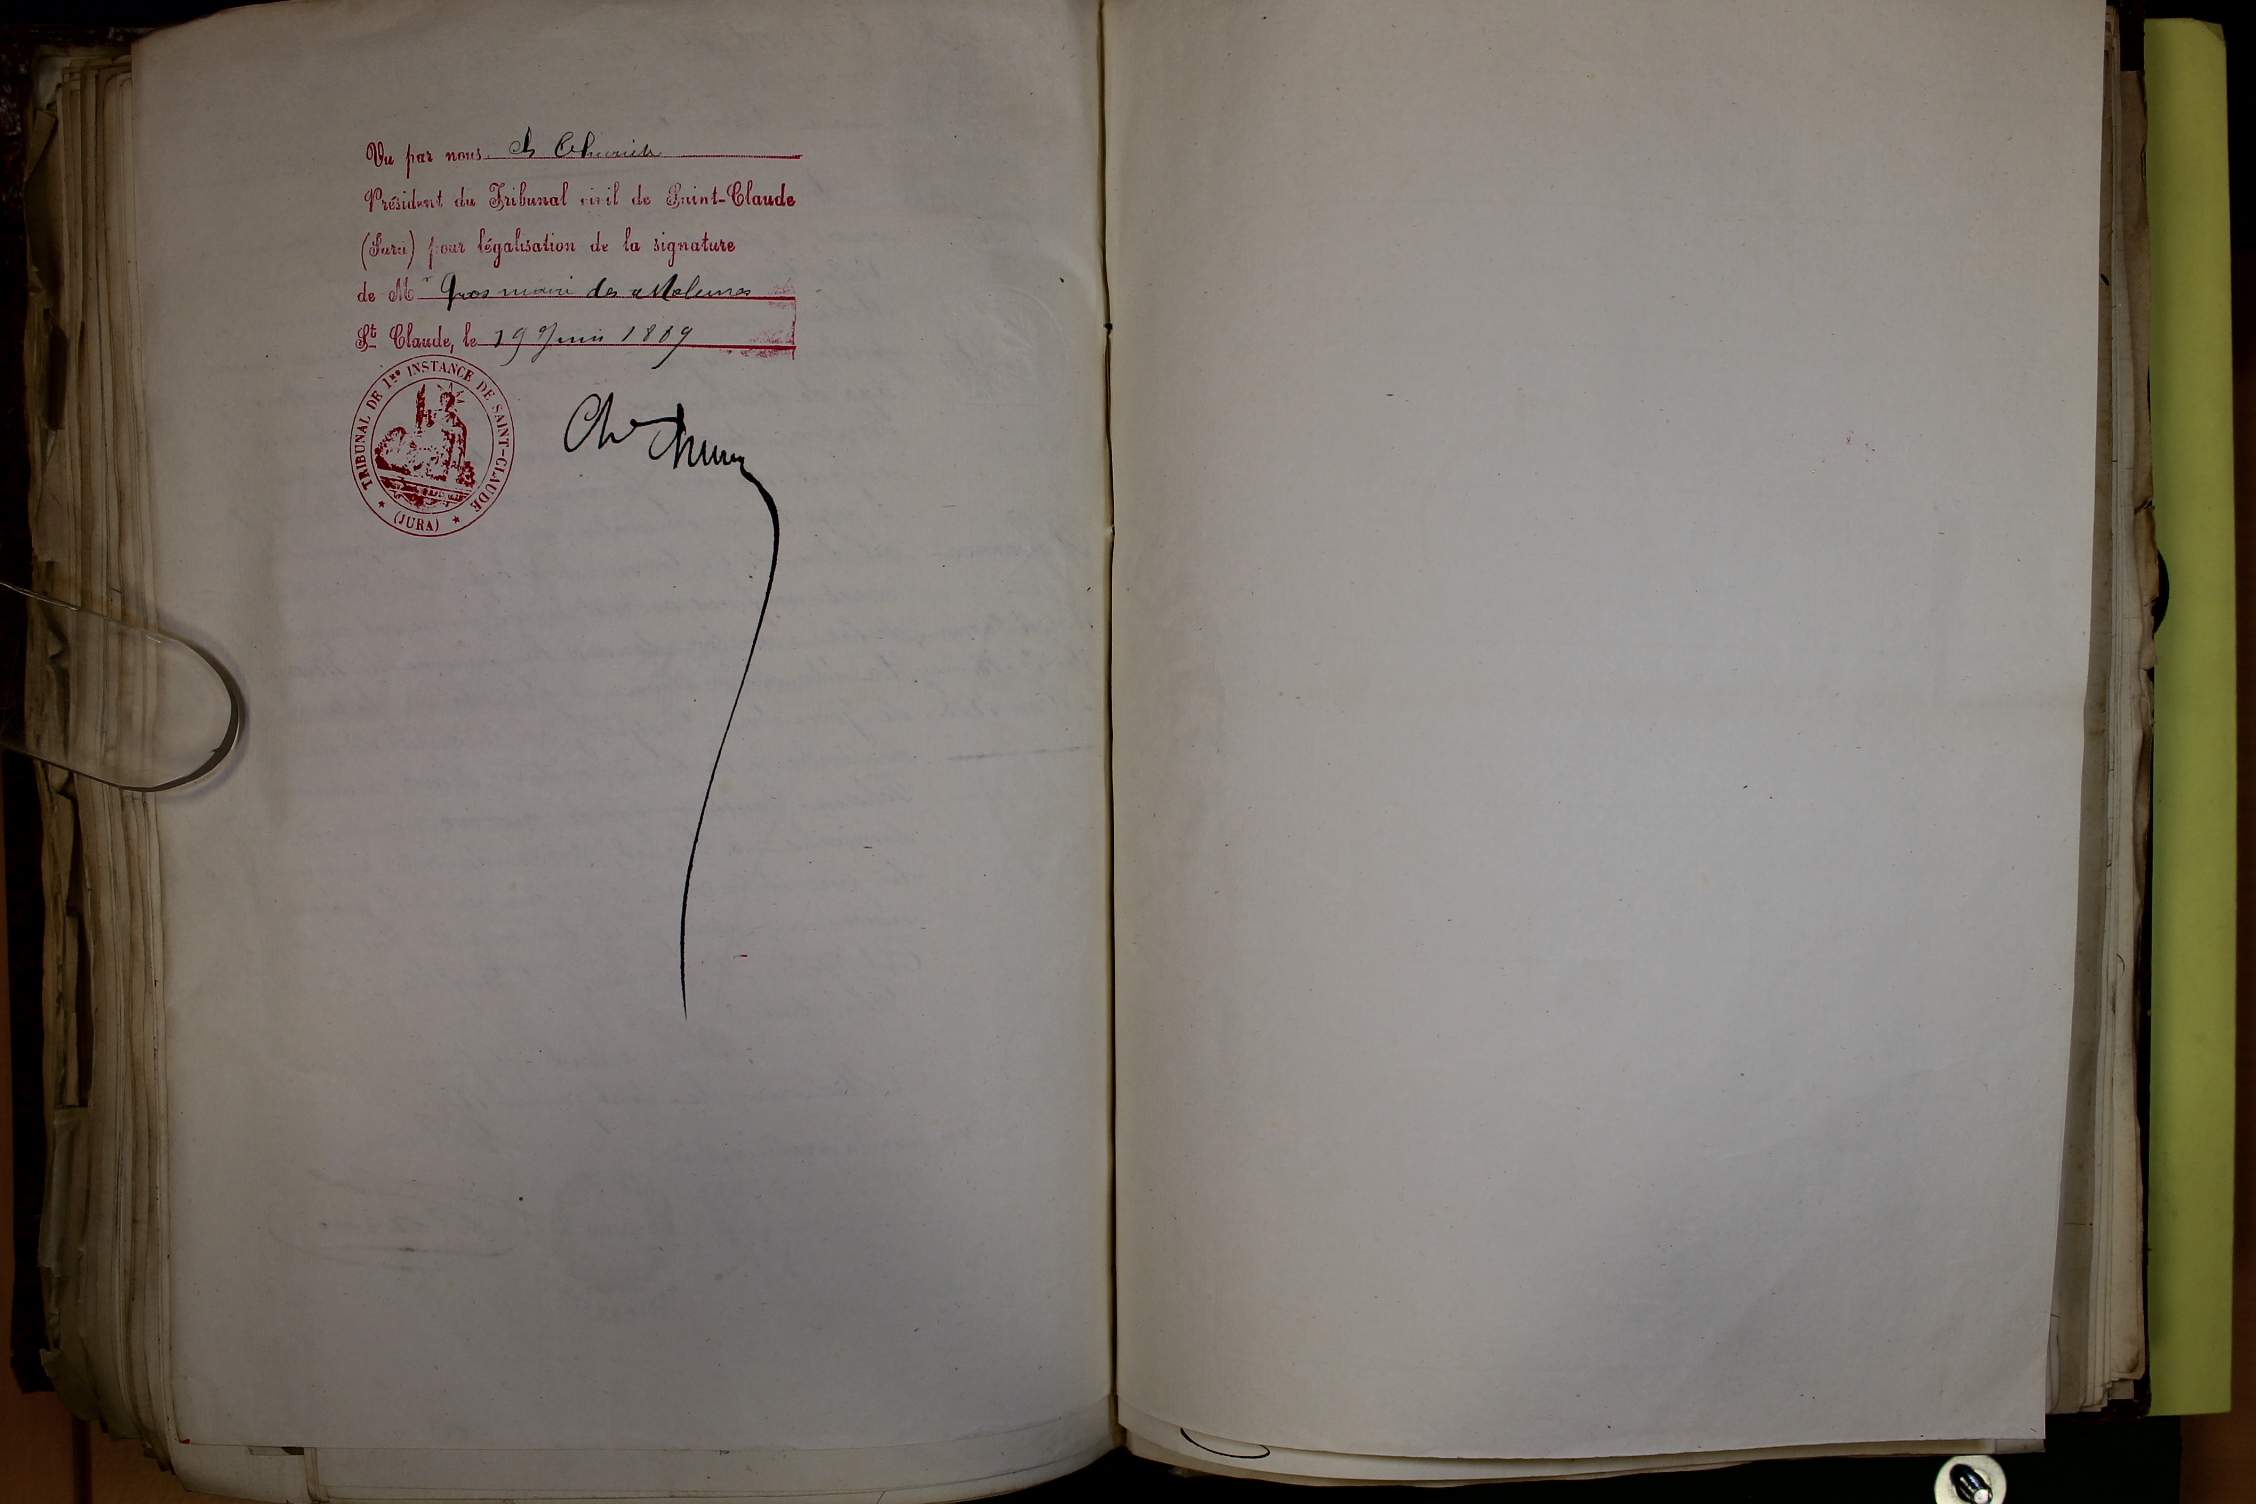 Vu par nous Ch Thurier
Président du Tribunal civil de Saint-Claude
(Jura) pour légalisation de la signature
de Mr Gros maire des Molunes
St Claude, le 19 Juin 1889
TRIBUNAL DE 1re INSTANCE DE SAINT-CLAUDE
(JURA)